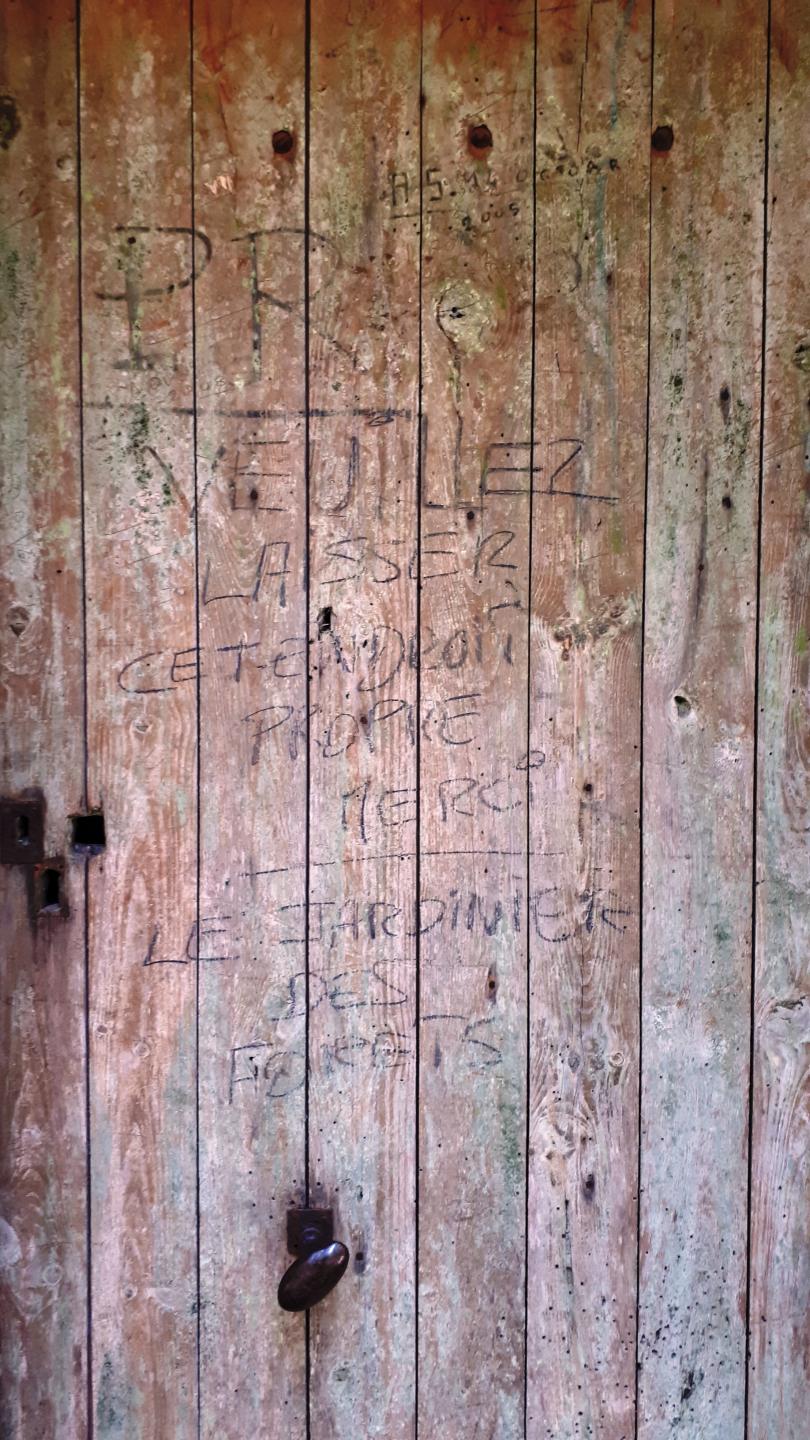 A 5.
2005
PR
VEUILLEZ
LAISSER
CET ENDROIT
PROPRE
MERCI
LE JARDINIER
DES
FORETS